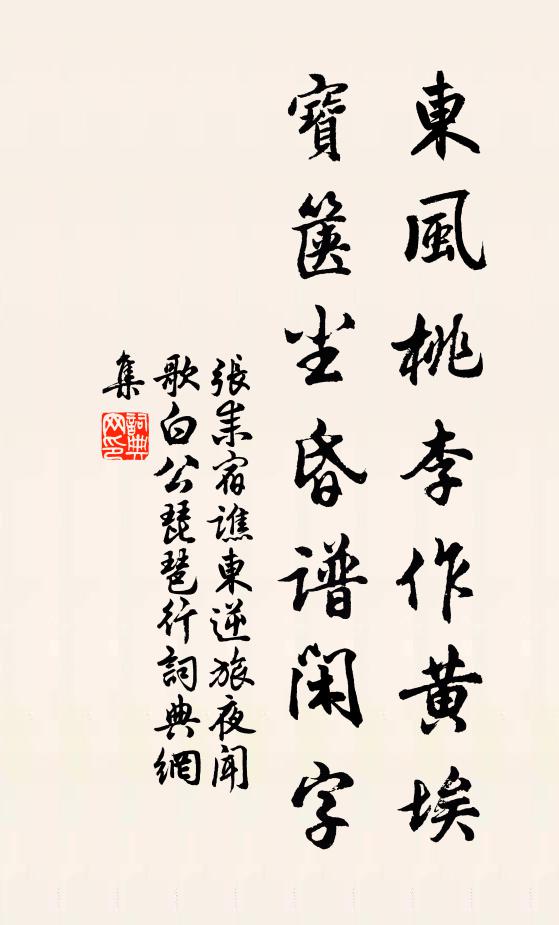 東風桃李作黄埃
寶篋坐昏谱閑字
張耒宿譙東逆旅夜聞
歌白公琵琶行詞典網
集
詞典
网印